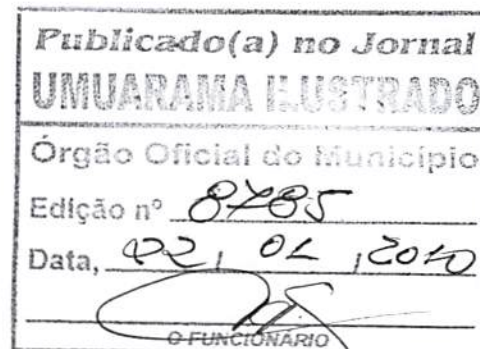 Publicado(a) no Jornal
UMUARAMA ILUSTRADO
Órgão Oficial do Município
Edição nº 8785
Data, 02, 01, 2010
O FUNCIONÁRIO